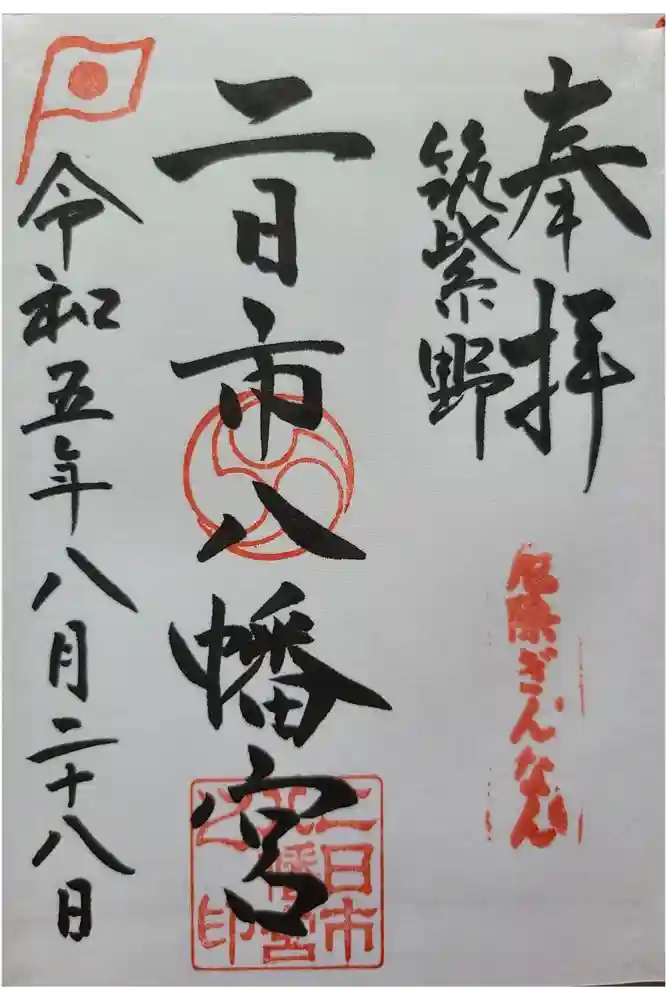 奉拝
筑紫野
厄除ぎんなん
二日市八幡宮
二日市八幡宮之印
令和五年八月二十八日